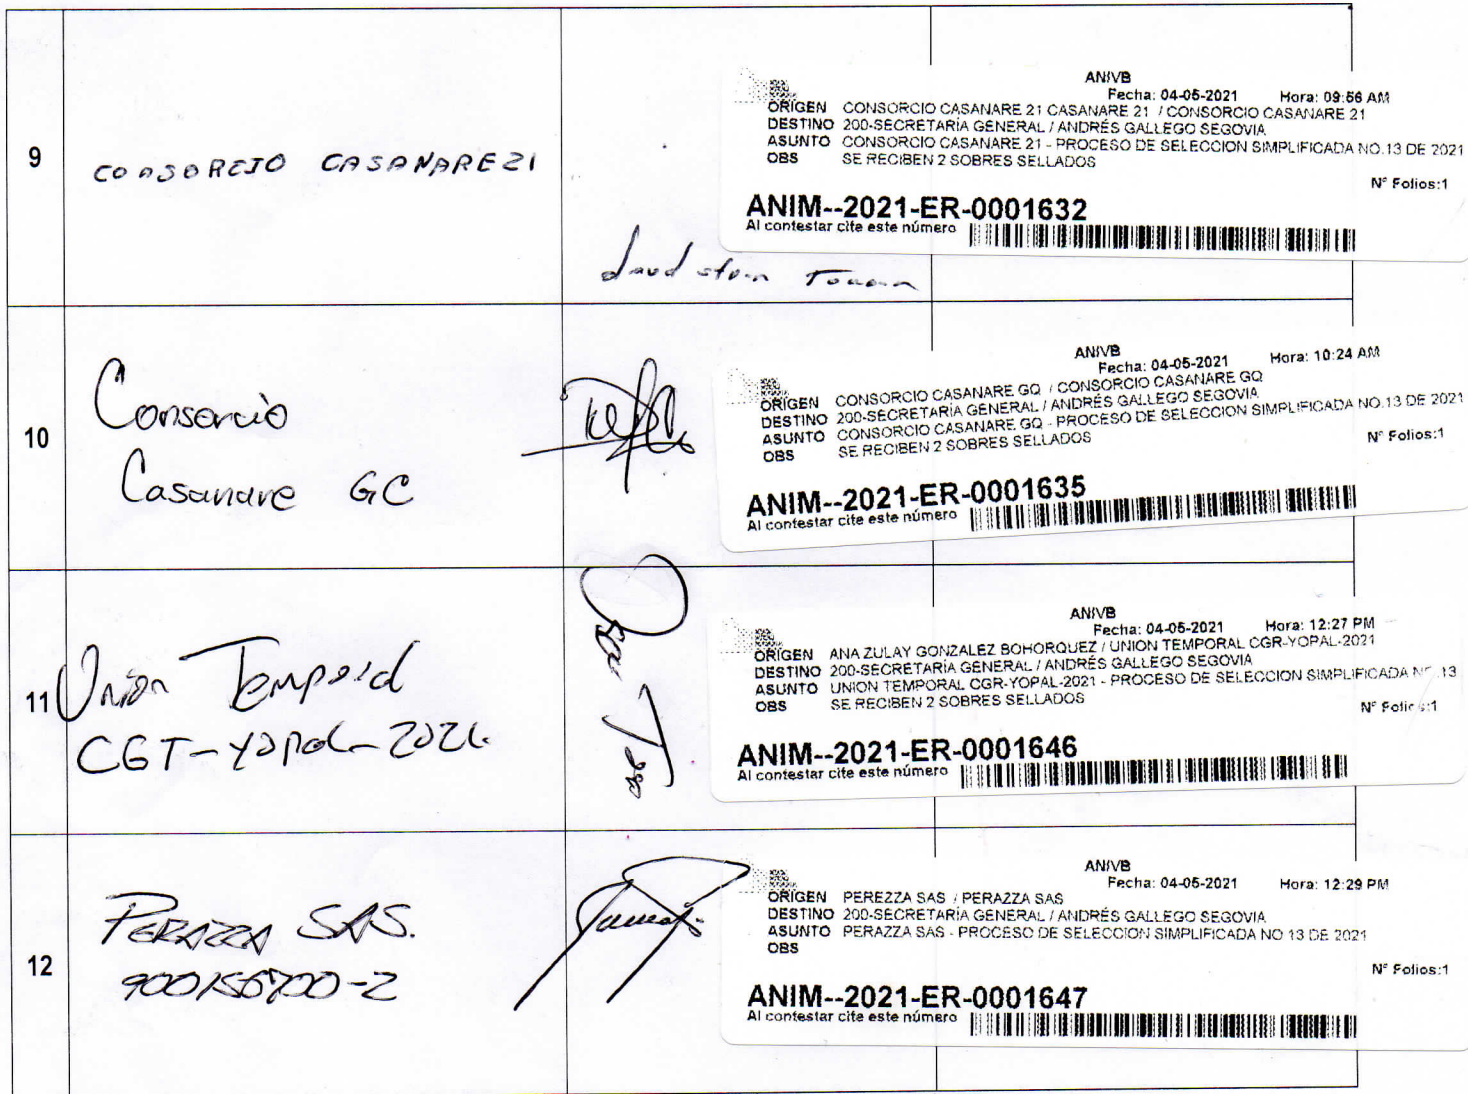 9
CONSORCIO CASANARE 21
ANIVB
Fecha: 04-05-2021 Hora: 09:56 AM
ORIGEN CONSORCIO CASANARE 21 CASANARE 21 / CONSORCIO CASANARE 21
DESTINO 200-SECRETARÍA GENERAL / ANDRÉS GALLEGO SEGOVIA
ASUNTO CONSORCIO CASANARE 21 - PROCESO DE SELECCION SIMPLIFICADA NO.13 DE 2021
OBS SE RECIBEN 2 SOBRES SELLADOS
N° Folios:1
ANIM--2021-ER-0001632
Al contestar cite este número
10
Consorcio
Casanare GC
ANIVB
Fecha: 04-05-2021 Hora: 10:24 AM
ORIGEN CONSORCIO CASANARE GQ / CONSORCIO CASANARE GQ
DESTINO 200-SECRETARÍA GENERAL / ANDRÉS GALLEGO SEGOVIA
ASUNTO CONSORCIO CASANARE GQ - PROCESO DE SELECCION SIMPLIFICADA NO.13 DE 2021
OBS SE RECIBEN 2 SOBRES SELLADOS
N° Folios:1
ANIM--2021-ER-0001635
Al contestar cite este número
11
Unión Temporal
CGT-Yopal-2021
ANIVB
Fecha: 04-05-2021 Hora: 12:27 PM
ORIGEN ANA ZULAY GONZALEZ BOHORQUEZ / UNION TEMPORAL CGR-YOPAL-2021
DESTINO 200-SECRETARÍA GENERAL / ANDRÉS GALLEGO SEGOVIA
ASUNTO UNION TEMPORAL CGR-YOPAL-2021 - PROCESO DE SELECCION SIMPLIFICADA NO.13
OBS SE RECIBEN 2 SOBRES SELLADOS
N° Folios:1
ANIM--2021-ER-0001646
Al contestar cite este número
12
PERAZZA SAS.
900156700-2
ANIVB
Fecha: 04-05-2021 Hora: 12:29 PM
ORIGEN PEREZZA SAS / PERAZZA SAS
DESTINO 200-SECRETARÍA GENERAL / ANDRÉS GALLEGO SEGOVIA
ASUNTO PERAZZA SAS - PROCESO DE SELECCION SIMPLIFICADA NO 13 DE 2021
OBS
N° Folios:1
ANIM--2021-ER-0001647
Al contestar cite este número